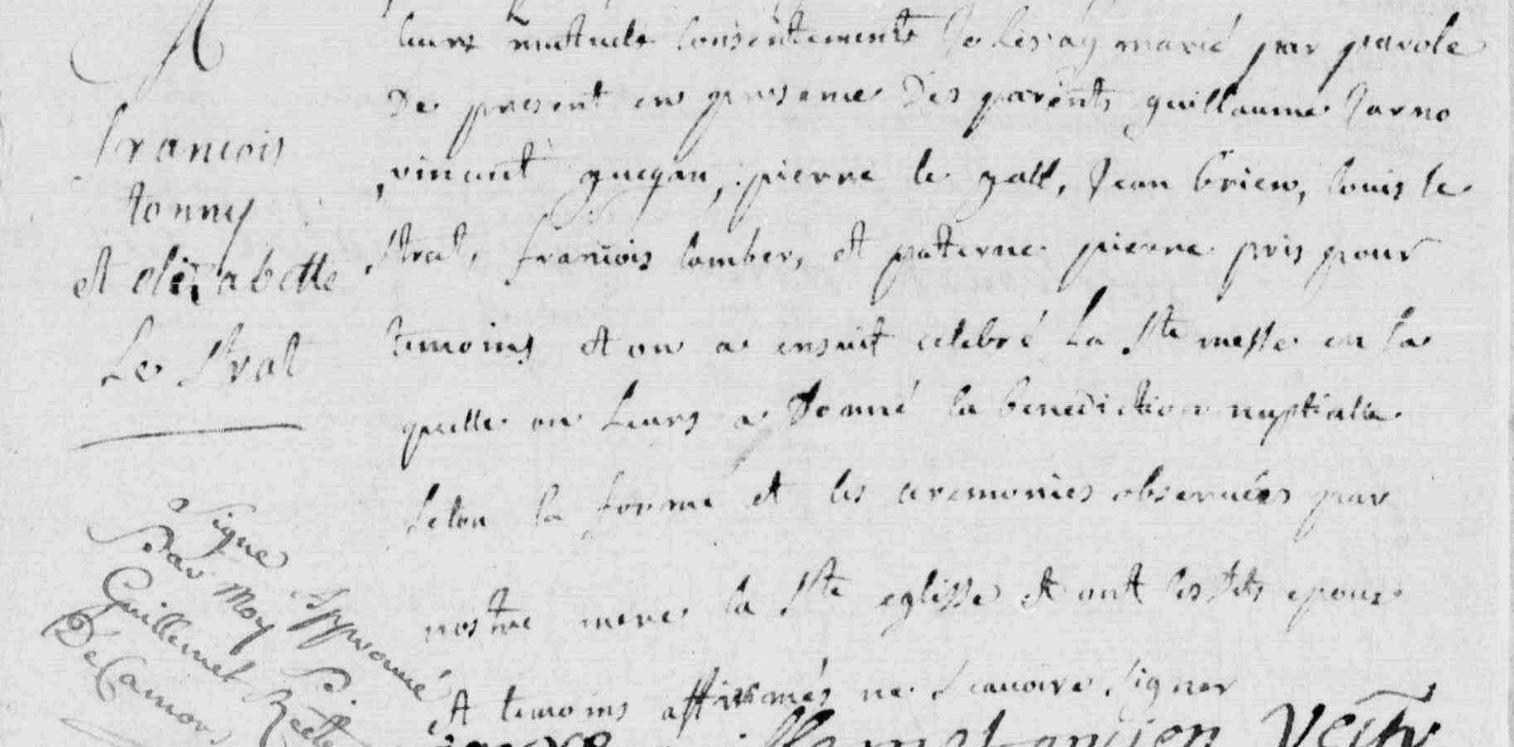 A
francois
tonny
et elizabette
Le strat
leurs mutuels consentements Je les ay marié par parole
De present en presence Des parents guillaume Jarno
vincent guegan, pierre le gall, Jean briend, louis le
strat, francois lamber, et paterne pierre pris pour
temoins et on a ensuit celebré La Ste messe en la
quelle on Leurs a Donné la benediction nuptialle
Selon la forme et les ceremonies observées par
nostre mere la Ste eglisse et ont les dits epoux
et temoins affirmés ne scauoire Signer
Signe Approuué
Par Moy
Guillemet
De Camors
ancien